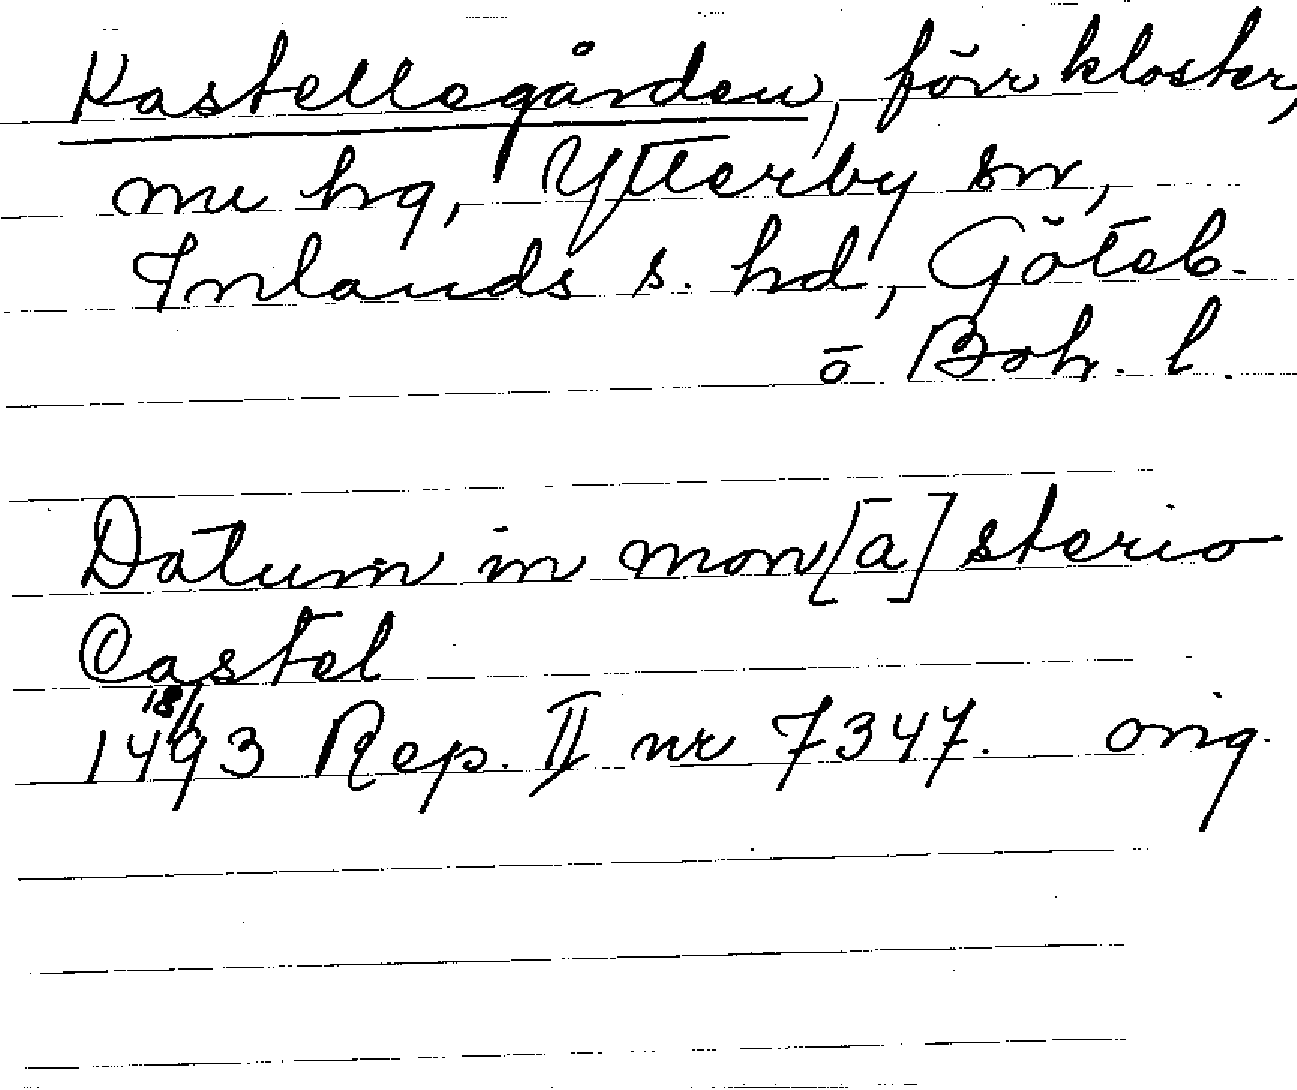 Kastellegården, förr kloster,
nu hg, Ytterby sn,
Inlands s. hd, Göteb.
o Boh. l.
Datum in mon[a]sterio
Castel
18/1 1493 Rep. II nr 7347. orig.